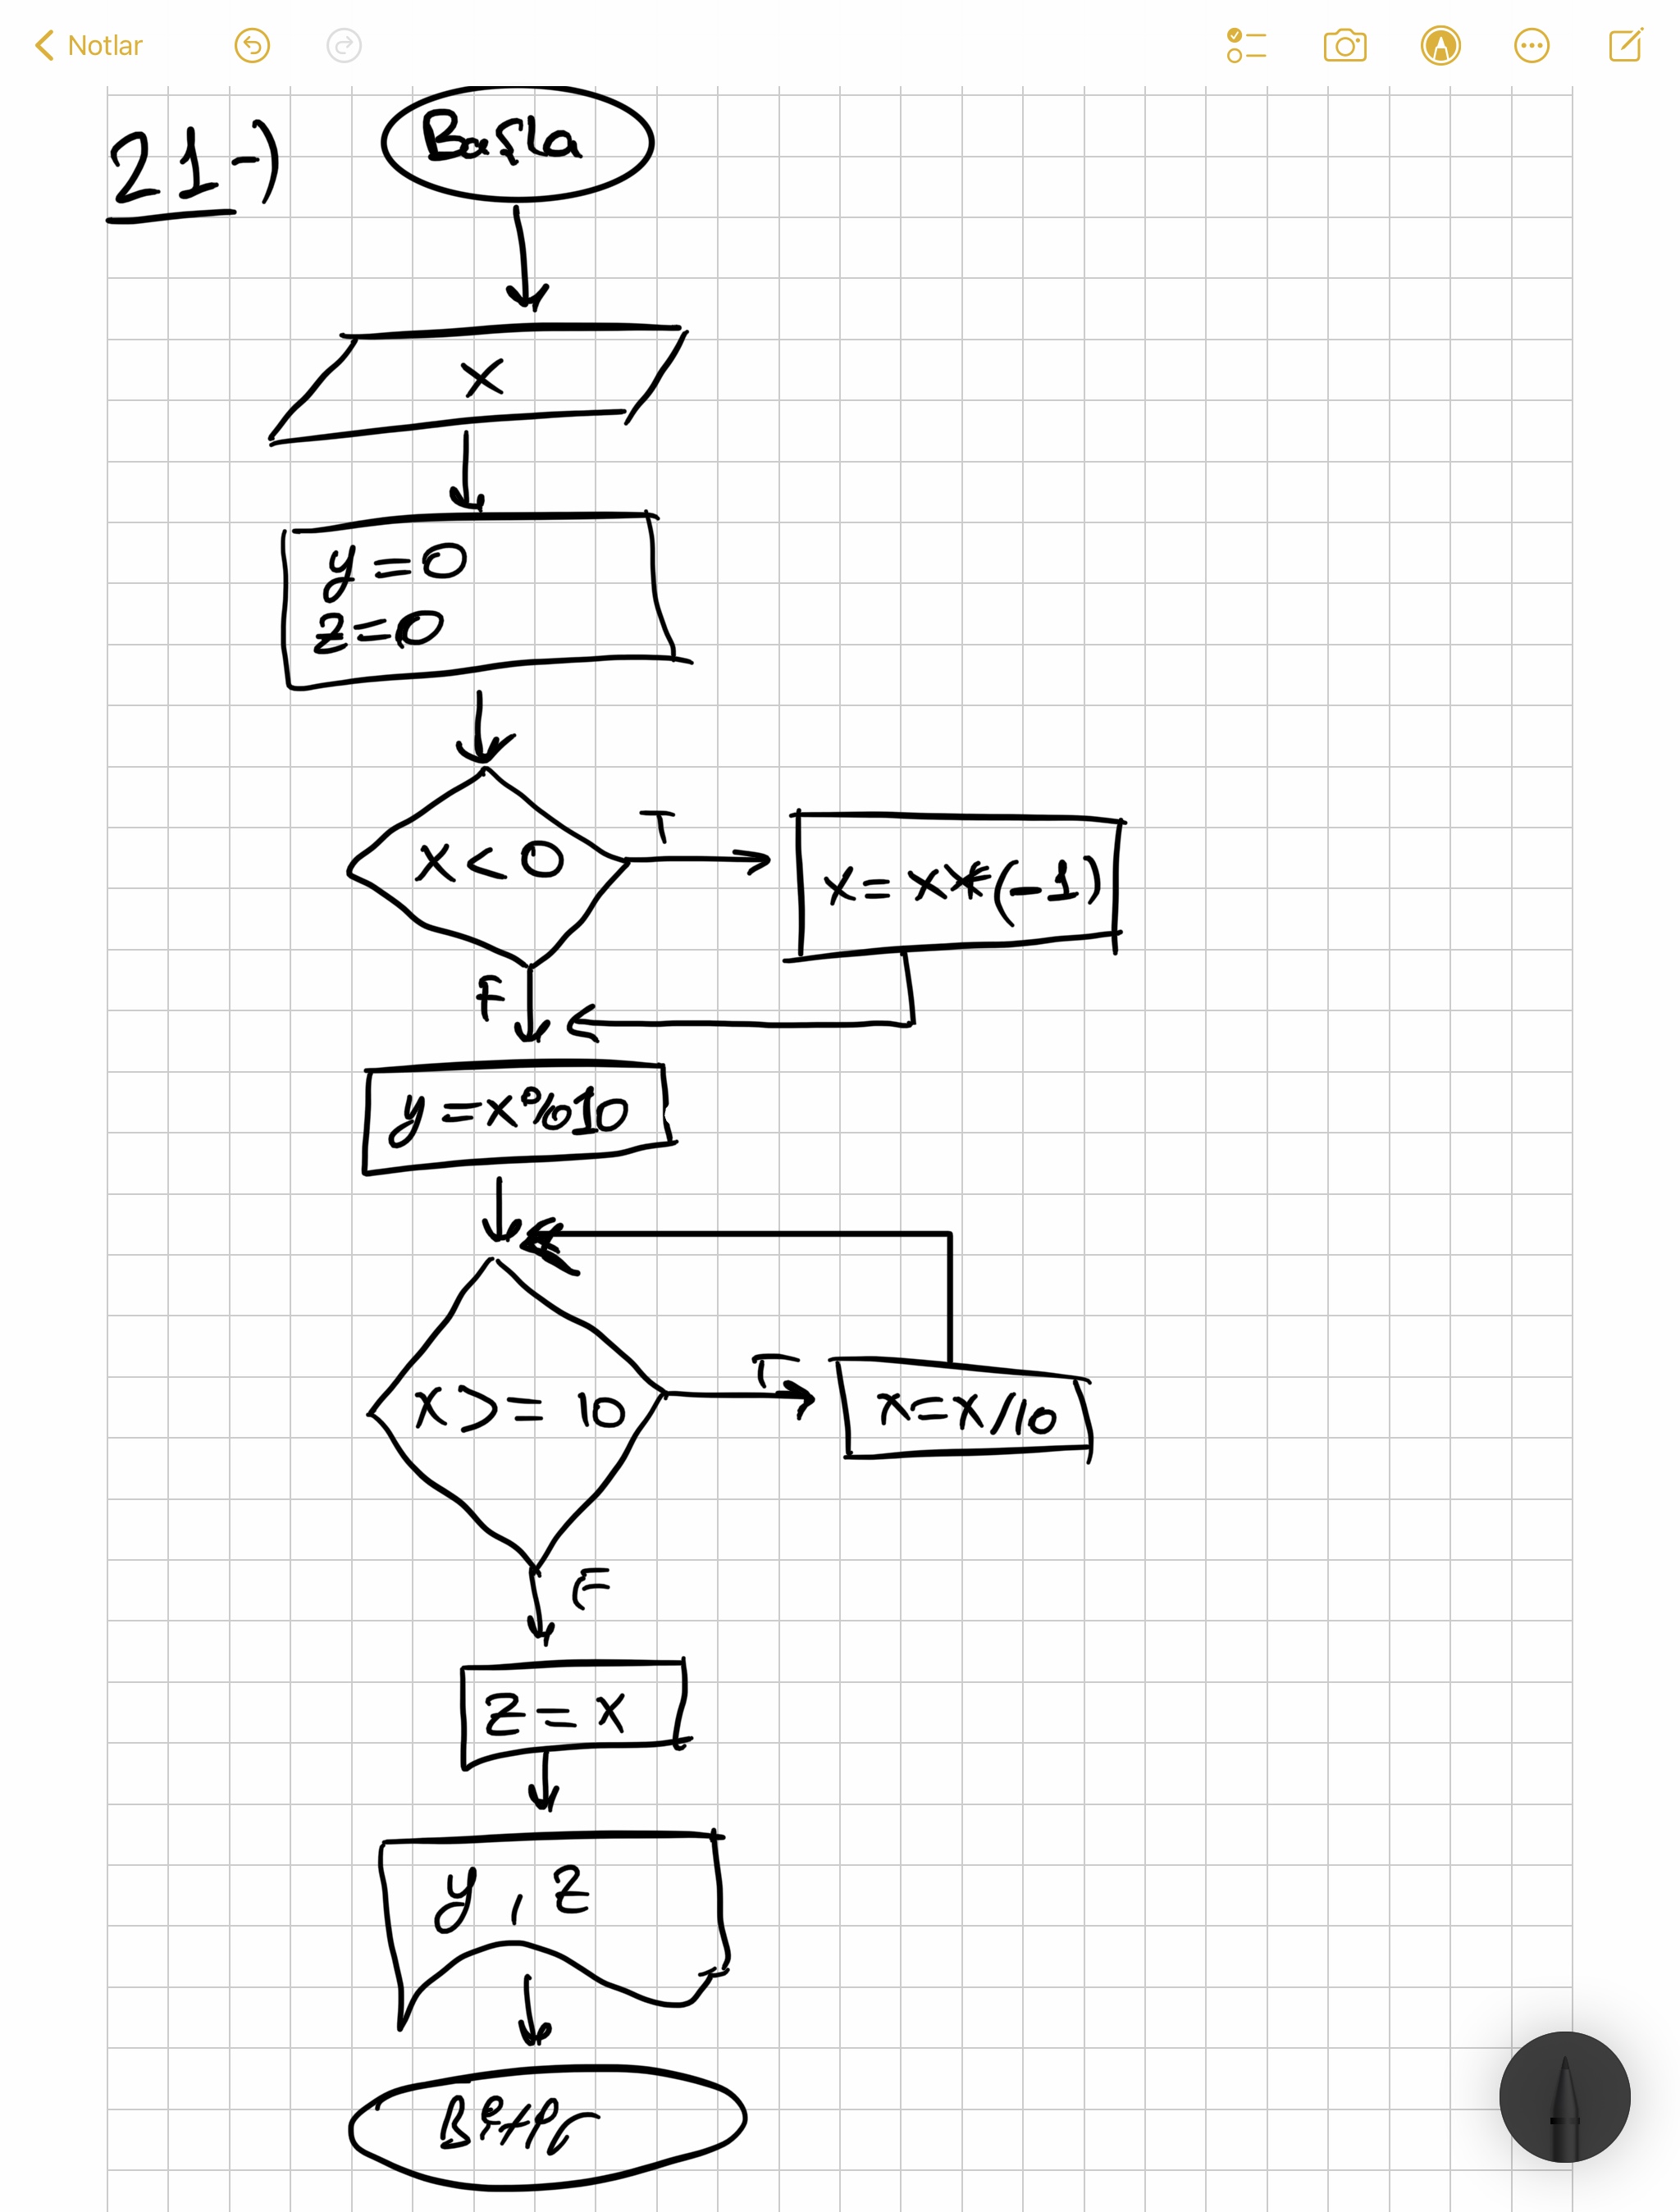 Notlar
21-)
Başla
x
y=0
z=0
x<0
T
x=x*(-1)
F
y=x%10
x>=10
T
x=x/10
F
z=x
y, z